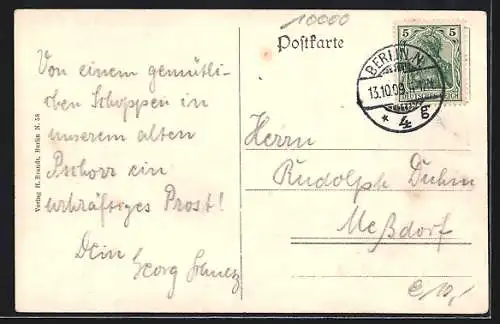 10000
Postkarte
5 5
BERLIN. N.
13.10.09.
* 4 g
Von einem gemütli-
chen Schoppen in
unserem alten
Pschorr ein
urkräftiges Prost!
Dein
Georg Schulz
Herrn
Rudolph Duhm
Meßdorf
Verlag H. Brandt, Berlin N. 58